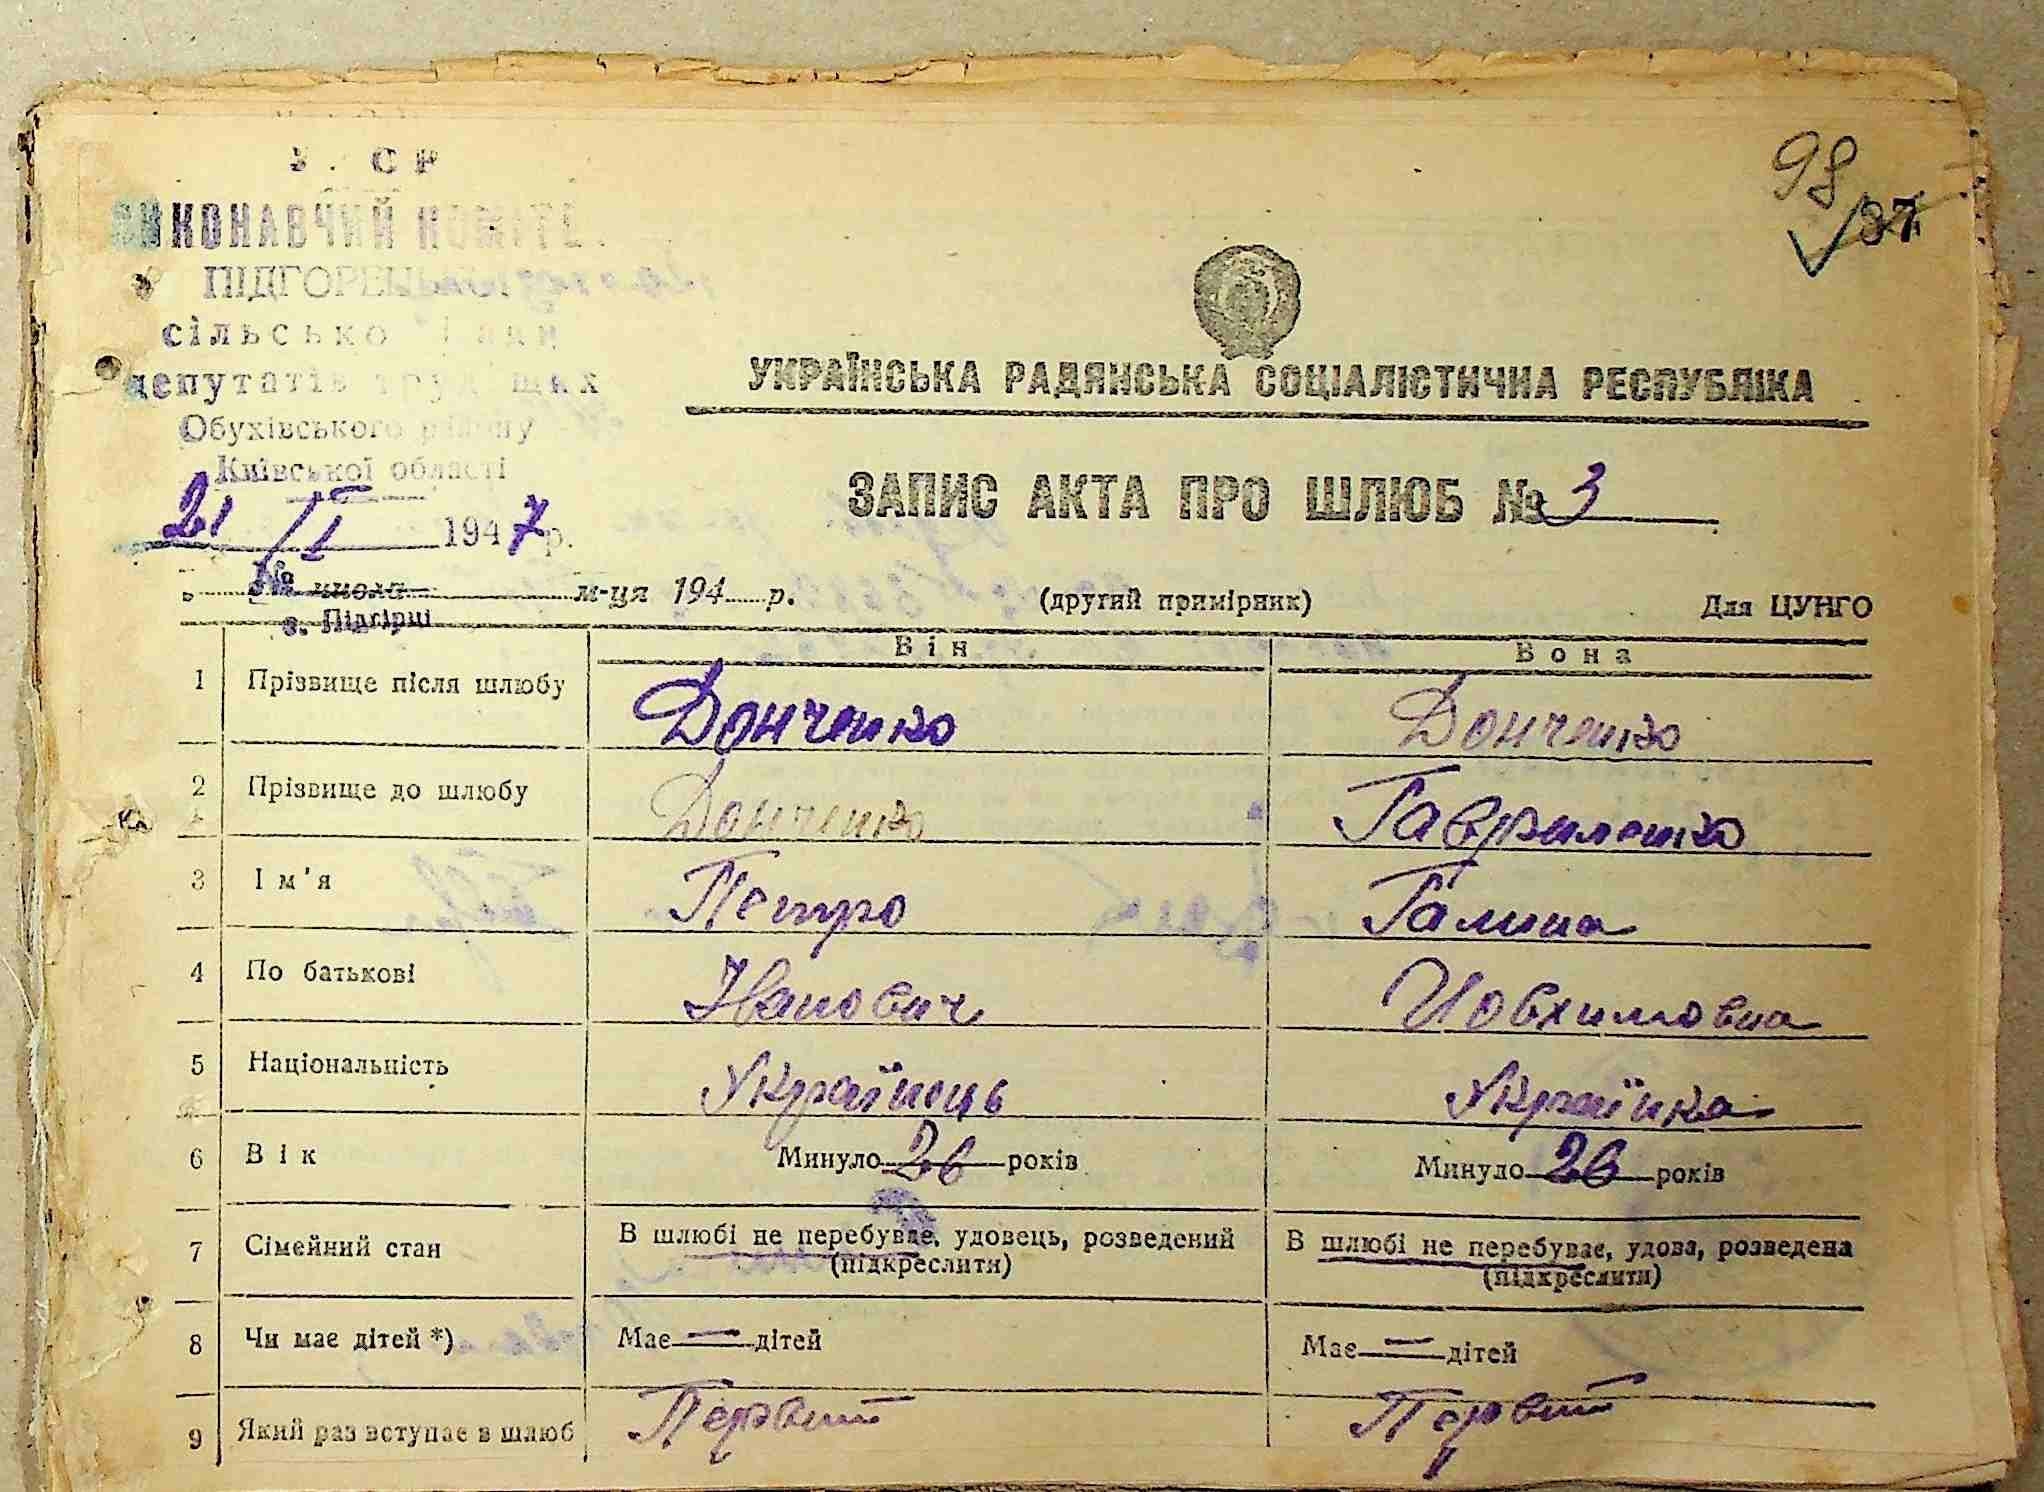 98
37
У СР
ВИКОНАВЧИЙ КОМІТЕ
ПІДГОРЕЦЬКОЇ
сільської Ради
депутатів трудящих
Обухівського району
Київської області
21/II 1947 р.
№
с. Підгірці
УКРАЇНСЬКА РАДЯНСЬКА СОЦІАЛІСТИЧНА РЕСПУБЛІКА
ЗАПИС АКТА ПРО ШЛЮБ № 3
числа м-ця 194 р. (другий примірник) Для ЦУНГО
Він Вона
1 Прізвище після шлюбу Донченко Донченко
2 Прізвище до шлюбу Донченко Гавриленко
3 Ім'я Петро Галина
4 По батькові Іванович Йовхимовна
5 Національність Українець Українка
6 Вік Минуло 26 років Минуло 26 років
7 Сімейний стан В шлюбі не перебуває, удовець, розведений В шлюбі не перебуває, удова, розведена
(підкреслити) (підкреслити)
8 Чи має дітей *) Має — дітей Має — дітей
9 Який раз вступає в шлюб Первий Первий